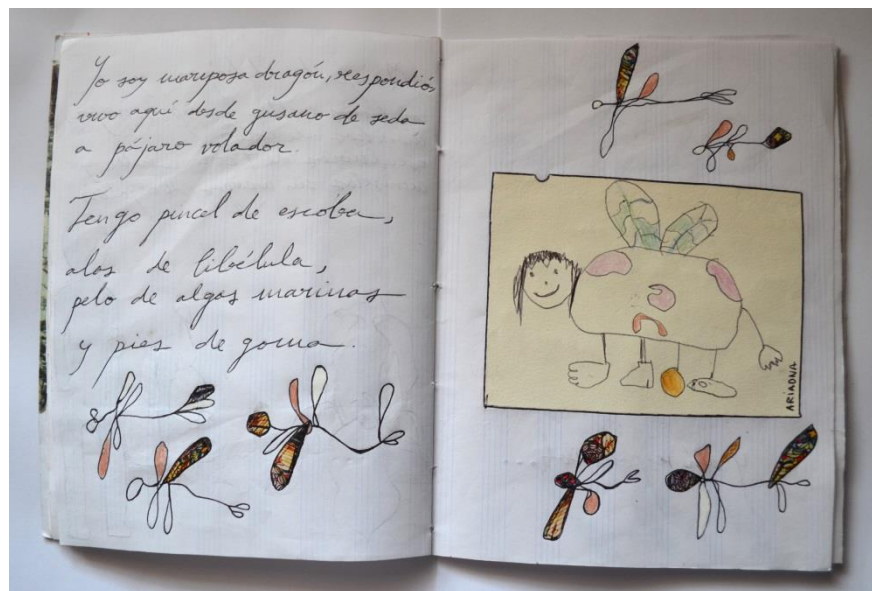 Yo soy mariposa dragón, respondió,
vivo aquí desde gusano de seda
a pájaro volador.
Tengo pincel de escoba,
alas de libélula,
pelo de algas marinas
y pies de goma.
ARIADNA